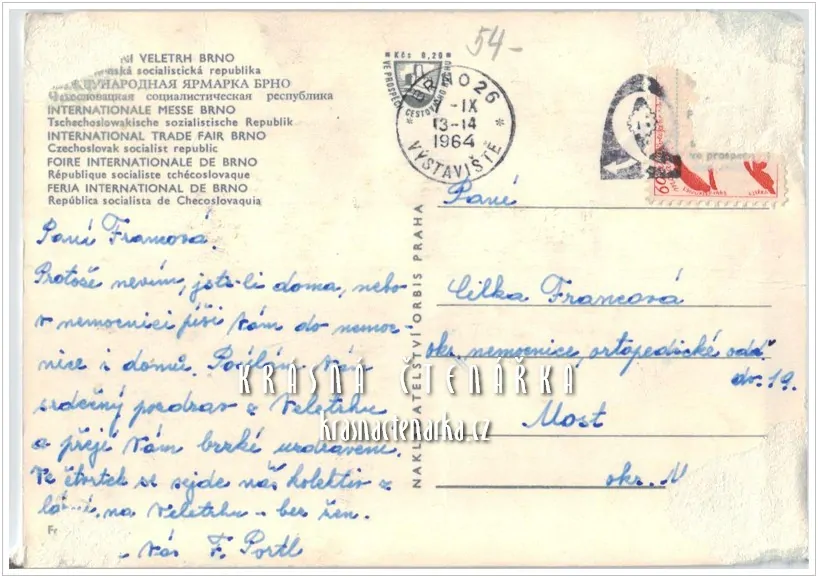 NÍ VELETRH BRNO
nská socialistická republika
МЕЖДУНАРОДНАЯ ЯРМАРКА БРНО
Чехословацкая социалистическая республика
INTERNATIONALE MESSE BRNO
Tschechoslowakische sozialistische Republik
INTERNATIONAL TRADE FAIR BRNO
Czechoslovak socialist republic
FOIRE INTERNATIONALE DE BRNO
République socialiste tchécoslovaque
FERIA INTERNATIONAL DE BRNO
República socialista de Checoslovaquia
Paní Francová.
Protože nevím, jste-li doma, nebo
v nemocnici píši Vám do nemoc-
nice i domů. Posílám Vám
srdečný pozdrav z Veletrhu
a přeji Vám brzké uzdravení.
Ve čtvrtek se sejde náš kolektiv z
na Veletrhu - bez žen.
Vás F. Portl
Fr
NAKLADATELSTVÍ ORBIS PRAHA
54-
Kčs 0,20
VE PROSPĚCH CESTOVNÍHO RUCHU
BRNO 26
-IX
13-14
1964
* VÝSTAVIŠTĚ *
60
Paní
Cilka Francová
okr. nemocnice, ortopedické odd.
dv. 19.
Most
okr. M
KRÁSNÁ ČTENÁŘKA
krasnactenarka.cz